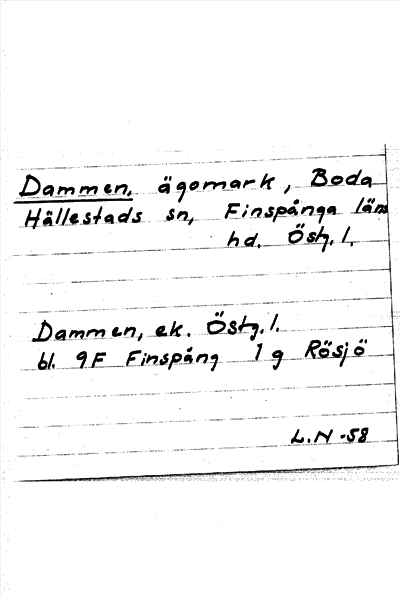 Dammen, ägomark, Boda
Hällestads sn, Finspånga läns
hd. Östg. l.
Dammen, ek. Östg. l.
bl. 9F Finspång 1 g Rösjö
L.N -58